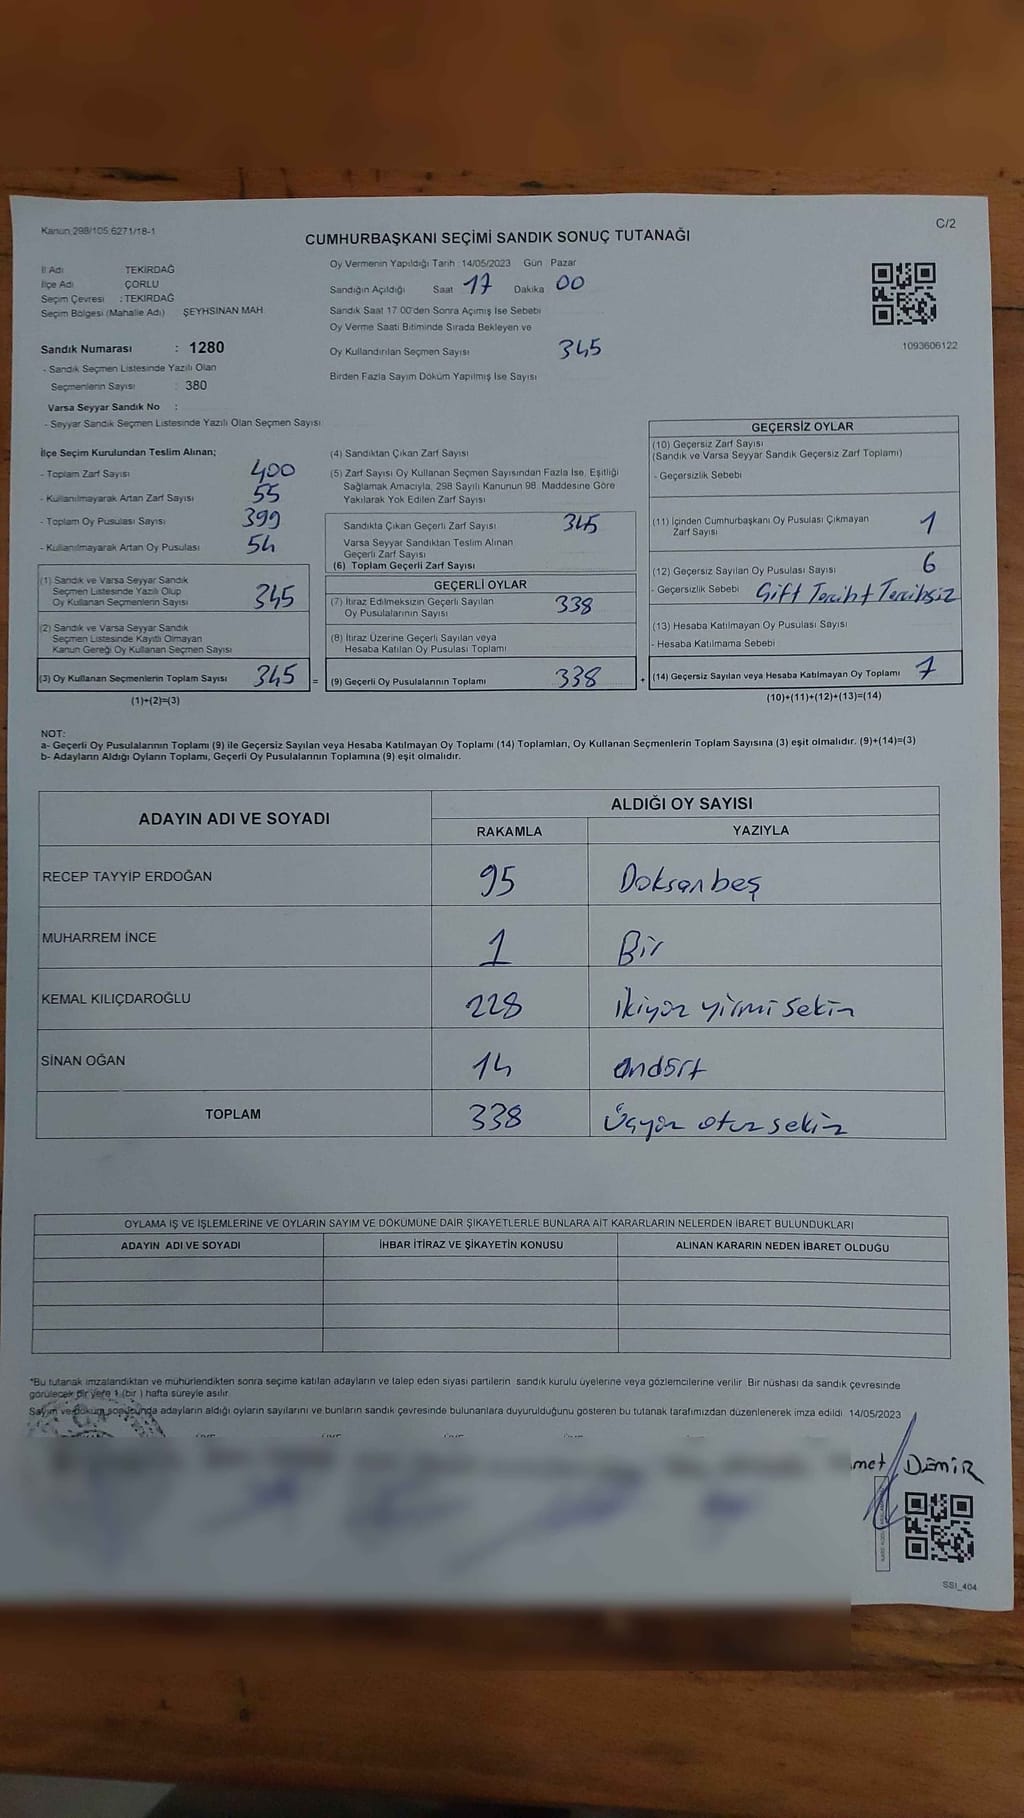 Kanun 298/105 6271/18-1
C/2
CUMHURBAŞKANI SEÇİMİ SANDIK SONUÇ TUTANAĞI
İl Adı TEKİRDAĞ
İlçe Adı ÇORLU
Seçim Çevresi : TEKİRDAĞ
Seçim Bölgesi (Mahalle Adı) ŞEYHSİNAN MAH
Sandık Numarası : 1280
- Sandık Seçmen Listesinde Yazılı Olan
Seçmenlerin Sayısı : 380
Varsa Seyyar Sandık No :
- Seyyar Sandık Seçmen Listesinde Yazılı Olan Seçmen Sayısı
Oy Vermenin Yapıldığı Tarih : 14/05/2023 Gün Pazar
Sandığın Açıldığı Saat 17 Dakika 00
Sandık Saat 17:00'den Sonra Açılmış İse Sebebi
Oy Verme Saati Bitiminde Sırada Bekleyen ve
Oy Kullandırılan Seçmen Sayısı 345
Birden Fazla Sayım Döküm Yapılmış İse Sayısı
1093606122
İlçe Seçim Kurulundan Teslim Alınan;
- Toplam Zarf Sayısı 400
- Kullanılmayarak Artan Zarf Sayısı 55
- Toplam Oy Pusulası Sayısı 399
- Kullanılmayarak Artan Oy Pusulası 54
(1) Sandık ve Varsa Seyyar Sandık
Seçmen Listesinde Yazılı Olup
Oy Kullanan Seçmenlerin Sayısı 345
(2) Sandık ve Varsa Seyyar Sandık
Seçmen Listesinde Kayıtlı Olmayan
Kanun Gereği Oy Kullanan Seçmen Sayısı
(3) Oy Kullanan Seçmenlerin Toplam Sayısı 345 =
(1)+(2)=(3)
(4) Sandıktan Çıkan Zarf Sayısı
(5) Zarf Sayısı Oy Kullanan Seçmen Sayısından Fazla İse, Eşitliği
Sağlamak Amacıyla, 298 Sayılı Kanunun 98. Maddesine Göre
Yakılarak Yok Edilen Zarf Sayısı
Sandıkta Çıkan Geçerli Zarf Sayısı 345
Varsa Seyyar Sandıktan Teslim Alınan
Geçerli Zarf Sayısı
(6) Toplam Geçerli Zarf Sayısı
GEÇERLİ OYLAR
(7) İtiraz Edilmeksizin Geçerli Sayılan
Oy Pusulalarının Sayısı 338
(8) İtiraz Üzerine Geçerli Sayılan veya
Hesaba Katılan Oy Pusulası Toplamı
(9) Geçerli Oy Pusulalarının Toplamı 338 +
GEÇERSİZ OYLAR
(10) Geçersiz Zarf Sayısı
(Sandık ve Varsa Seyyar Sandık Geçersiz Zarf Toplamı)
- Geçersizlik Sebebi
(11) İçinden Cumhurbaşkanı Oy Pusulası Çıkmayan
Zarf Sayısı 1
(12) Geçersiz Sayılan Oy Pusulası Sayısı 6
- Geçersizlik Sebebi Çift Tercih + Tercihsiz
(13) Hesaba Katılmayan Oy Pusulası Sayısı
- Hesaba Katılmama Sebebi
(14) Geçersiz Sayılan veya Hesaba Katılmayan Oy Toplamı 7
(10)+(11)+(12)+(13)=(14)
NOT:
a- Geçerli Oy Pusulalarının Toplamı (9) ile Geçersiz Sayılan veya Hesaba Katılmayan Oy Toplamı (14) Toplamları, Oy Kullanan Seçmenlerin Toplam Sayısına (3) eşit olmalıdır. (9)+(14)=(3)
b- Adayların Aldığı Oyların Toplamı, Geçerli Oy Pusulalarının Toplamına (9) eşit olmalıdır.
ADAYIN ADI VE SOYADI
ALDIĞI OY SAYISI
RAKAMLA YAZIYLA
RECEP TAYYİP ERDOĞAN 95 Doksan beş
MUHARREM İNCE 1 Bir
KEMAL KILIÇDAROĞLU 228 ikiyüz yirmi sekiz
SİNAN OĞAN 14 ondört
TOPLAM 338 Üçyüz otuz sekiz
OYLAMA İŞ VE İŞLEMLERİNE VE OYLARIN SAYIM VE DÖKÜMÜNE DAİR ŞİKAYETLERLE BUNLARA AİT KARARLARIN NELERDEN İBARET BULUNDUKLARI
ADAYIN ADI VE SOYADI İHBAR İTİRAZ VE ŞİKAYETİN KONUSU ALINAN KARARIN NEDEN İBARET OLDUĞU
*Bu tutanak imzalandıktan ve mühürlendikten sonra seçime katılan adayların ve talep eden siyasi partilerin sandık kurulu üyelerine veya gözlemcilerine verilir. Bir nüshası da sandık çevresinde
görülecek bir yere 1 (bir) hafta süreyle asılır.
Sayım ve döküm sonucunda adayların aldığı oyların sayılarını ve bunların sandık çevresinde bulunanlara duyurulduğunu gösteren bu tutanak tarafımızdan düzenlenerek imza edildi 14/05/2023
met DEMİR
SSI_404